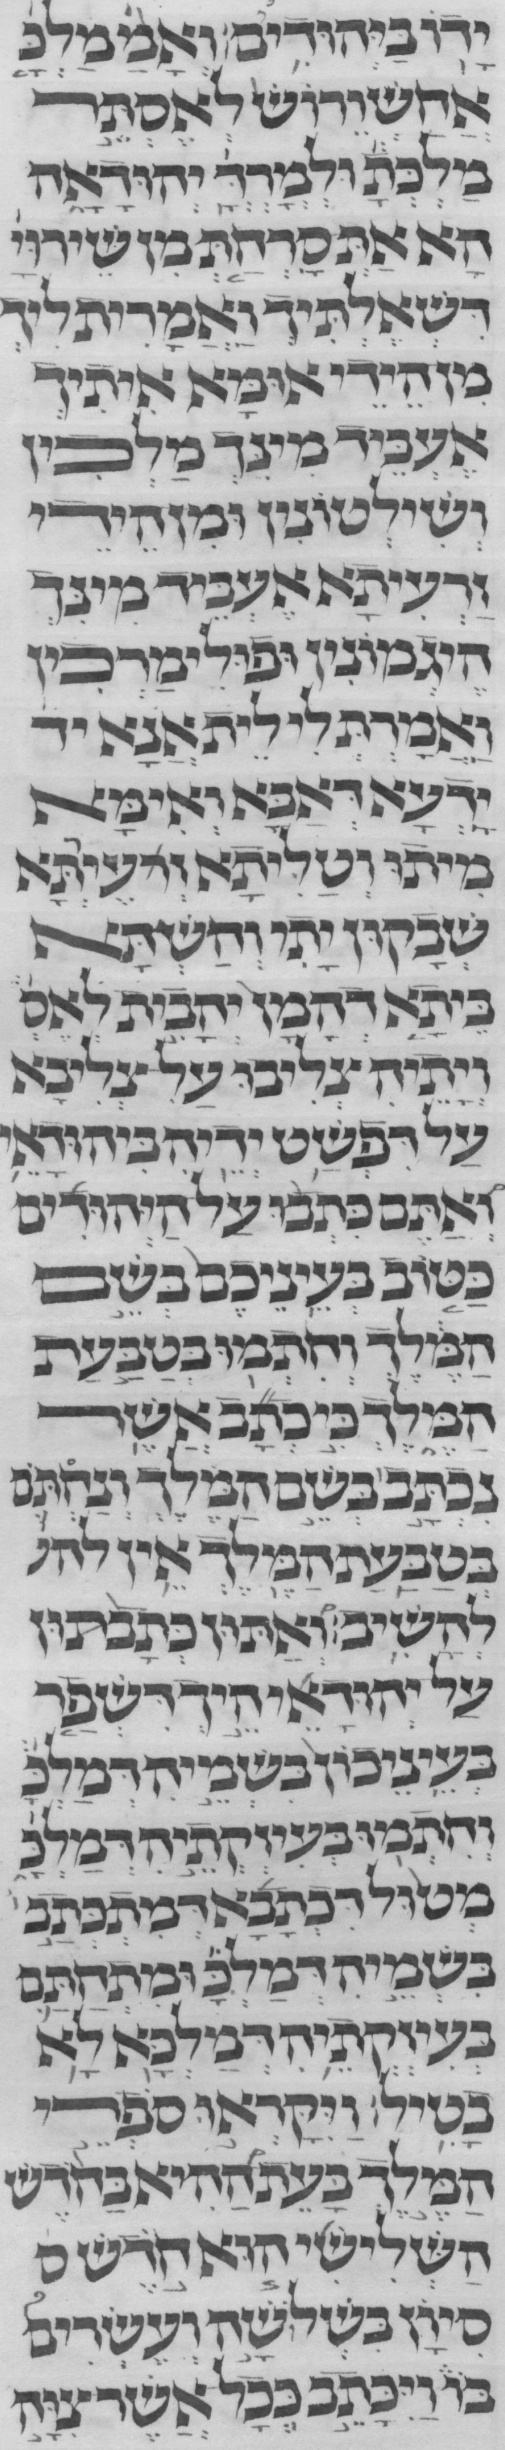 ידו ביהודים ואמ׳ מלכ׳
אחשורוש לאסתר
מלכת׳ ולמרד׳ יהודאה
הא את סרחת מן שירוי׳
דשאלתיך ואמרית ליך
מן הידי אומא איתיך
אעביד מינך מלכין
ושילטונין ומן הידי
זרעיתא אעביד מינך
היגמונין ופולימרכין
ואמרת לי לית אנא יד
ידעא דאבא ואימא
מיתו וטליתא זרעיתא
שבקון יתי וחשתא
ביתא דהמן יהבית לאס׳
ויתיה צליבו על צליבא
על דפשט ידיה ביהודאי
ואתם כתבו על היהודים
כטוב בעיניכם בשם
המלך וחתמו בטבעת
המלך כי כתב אשר
נכתב בשם המלך ונחתם
בטבעת המלך אין לה׳
להשיב ואתון כתבתון
על יהודאי היך דשפר
בעיניכון בשמיה דמלכ׳
וחתמו בעיזקתיה דמלכ׳
מטול דכתבא דמתכתב
בשמיה דמלכ׳ ומתחתם
בעיזקתיה דמלכא לא
בטיל ויקראו ספרי
המלך בעת ההיא בחדש
השלישי הוא חדש ס
סיון בשלשה ועשרים
בו ויכתב ככל אשר צוה